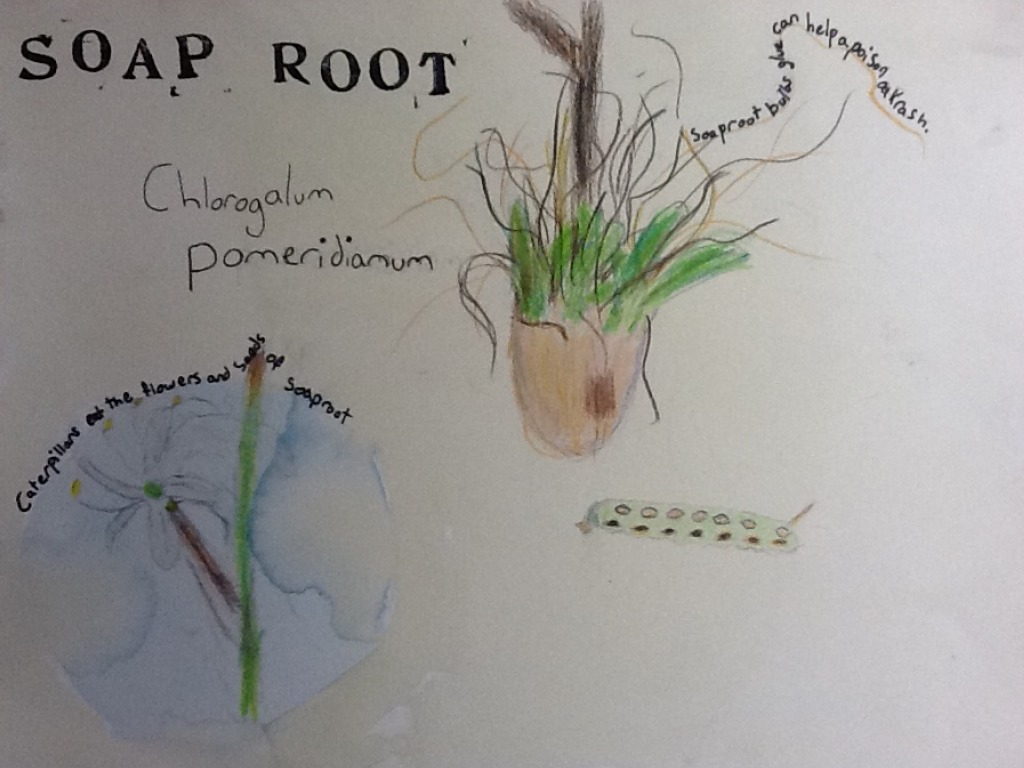 SOAP ROOT
Chlorogalum
pomeridianum
Soaproot bulbs glue can help a poison oak rash.
Caterpillars eat the flowers and seeds of soaproot